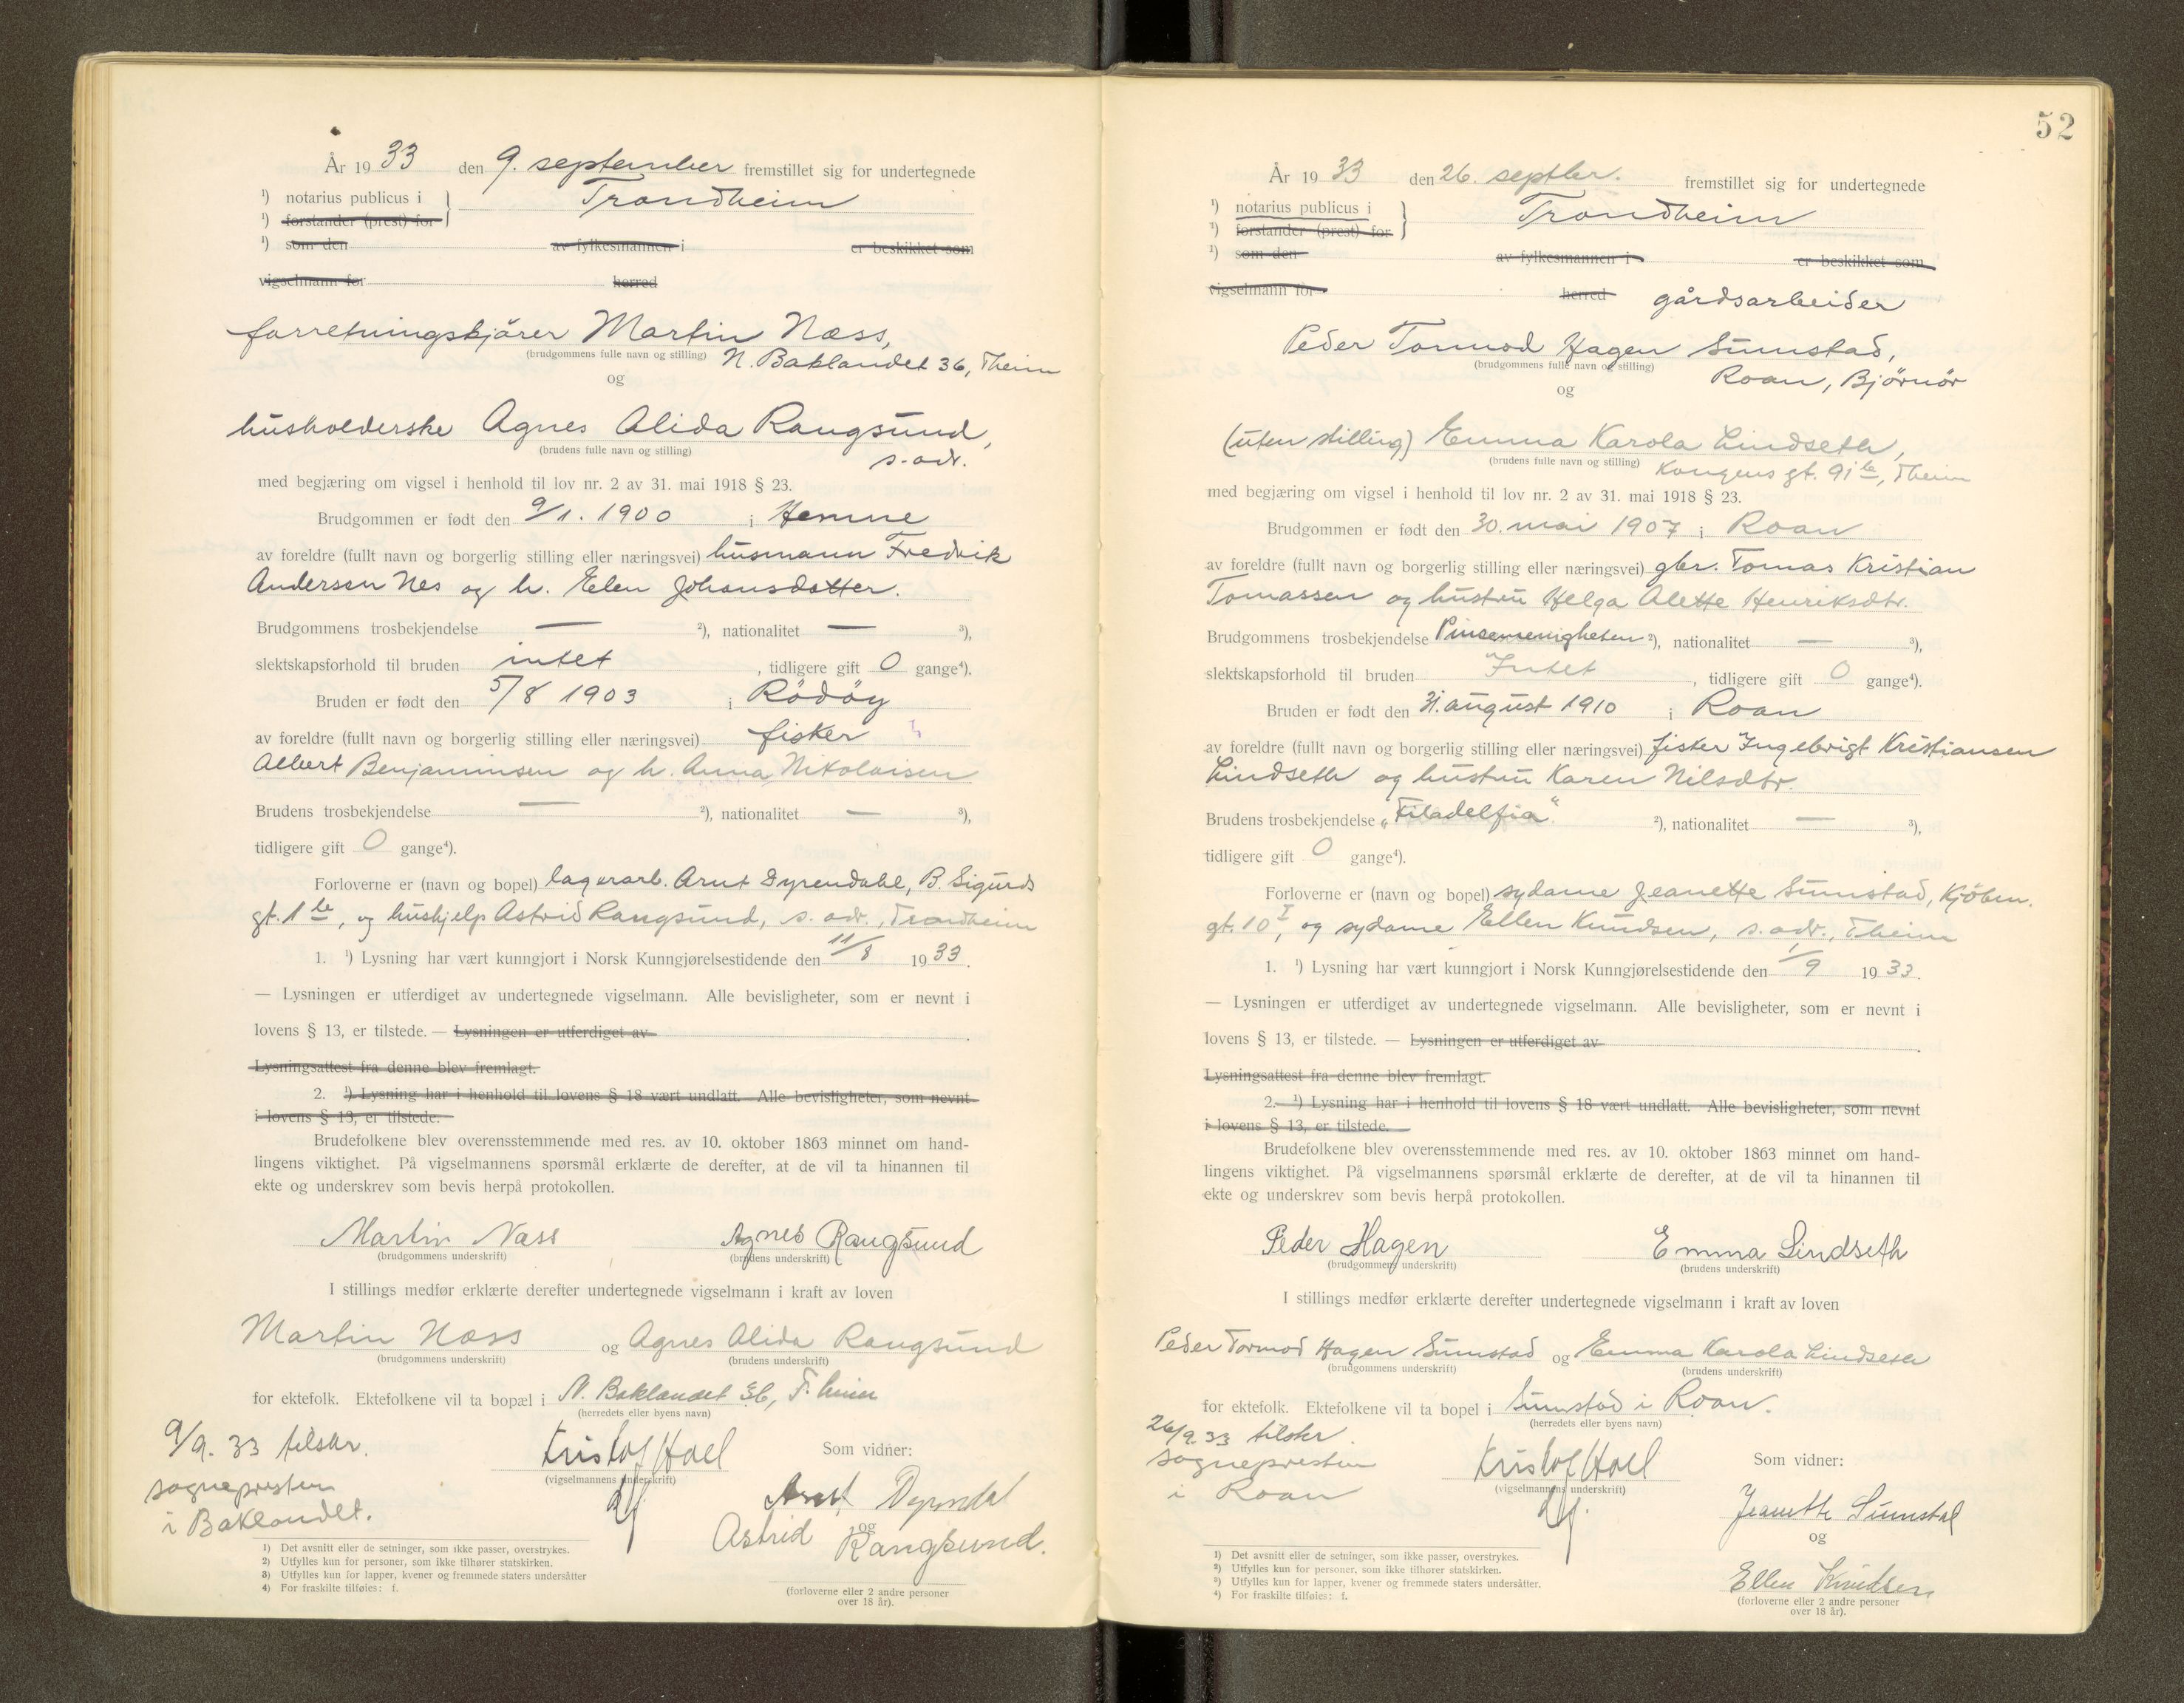 År 1933 den 9. september fremstillet sig for undertegnede
¹) notarius publicus i } Trondheim
¹) forstander (prest) for
¹) som den av fylkesmannen i er beskikket som
vigselmann for herred
forretningskjører Martin Næss,
(brudgommens fulle navn og stilling) N. Baklandet 36, Theim
og
husholderske Agnes Alida Rangsund,
(brudens fulle navn og stilling) s. adr.
med begjæring om vigsel i henhold til lov nr. 2 av 31. mai 1918 § 23.
Brudgommen er født den 9/1. 1900 i Hemne
av foreldre (fullt navn og borgerlig stilling eller næringsvei) husmann Fredrik
Andersen Nes og h. Elen Johansdatter.
Brudgommens trosbekjendelse — ²), nationalitet — ³),
slektskapsforhold til bruden intet, tidligere gift 0 gange⁴).
Bruden er født den 5/8 1903 i Rödöy
av foreldre (fullt navn og borgerlig stilling eller næringsvei) fisker
Albert Benjaminsen og h. Anna Nikolaisen
Brudens trosbekjendelse — ²), nationalitet — ³),
tidligere gift 0 gange⁴).
Forloverne er (navn og bopel) lagerarb. Arnt Dyrendahl, B. Sigurds
gt. 1 b, og hushjelp Astrid Rangsund, s. adr., Trondheim
1. ¹) Lysning har vært kunngjort i Norsk Kunngjørelsestidende den 11/8 1933.
— Lysningen er utferdiget av undertegnede vigselmann. Alle bevisligheter, som er nevnt i
lovens § 13, er tilstede. — Lysningen er utferdiget av
Lysningsattest fra denne blev fremlagt.
2. ¹) Lysning har i henhold til lovens § 18 vært undlatt. Alle bevisligheter, som nevnt
i lovens § 13, er tilstede.
Brudefolkene blev overensstemmende med res. av 10. oktober 1863 minnet om hand-
lingens viktighet. På vigselmannens spørsmål erklærte de derefter, at de vil ta hinannen til
ekte og underskrev som bevis herpå protokollen.
Martin Næss Agnes Rangsund
(brudgommens underskrift) (brudens underskrift)
I stillings medfør erklærte derefter undertegnede vigselmann i kraft av loven
Martin Næss og Agnes Alida Rangsund
(brudgommens underskrift) (brudens underskrift)
for ektefolk. Ektefolkene vil ta bopæl i N. Baklandet 36, T.heim
(herredets eller byens navn)
9/9. 33 tilskr.
sognepresten
i Baklandet.
Kristof Hoel
(vigselmannens underskrift)
Som vidner:
Arnt Dyrendal
og
Astrid Rangsund.
(forloverne eller 2 andre personer
over 18 år).
1) Det avsnitt eller de setninger, som ikke passer, overstrykes.
2) Utfylles kun for personer, som ikke tilhører statskirken.
3) Utfylles kun for lapper, kvener og fremmede staters undersåtter
4) For fraskilte tilføies: f.
52
År 1933 den 26. septbr. fremstillet sig for undertegnede
¹) notarius publicus i } Trondheim
¹) forstander (prest) for
¹) som den av fylkesmannen i er beskikket som
vigselmann for herred gårdsarbeider
Peder Tormod Hagen Sumstad,
(brudgommens fulle navn og stilling) Roan, Bjørnör
og
(uten stilling) Emma Karola Lindseth,
(brudens fulle navn og stilling) Kongens gt. 91 b, Theim
med begjæring om vigsel i henhold til lov nr. 2 av 31. mai 1918 § 23.
Brudgommen er født den 30. mai 1907 i Roan
av foreldre (fullt navn og borgerlig stilling eller næringsvei) gbr. Tomas Kristian
Tomassen og hustru Helga Alette Henriksdtr.
Brudgommens trosbekjendelse Pinsemenigheten ²), nationalitet — ³),
slektskapsforhold til bruden Intet, tidligere gift 0 gange⁴).
Bruden er født den 31. august 1910 i Roan
av foreldre (fullt navn og borgerlig stilling eller næringsvei) fisker Ingebrigt Kristiansen
Lindseth og hustru Karen Nilsdtr.
Brudens trosbekjendelse „Filadelfia" ²), nationalitet — ³),
tidligere gift 0 gange⁴).
Forloverne er (navn og bopel) sydame Jeanette Sumstad, Kjøbm.
gt. 10 I, og sydame Ellen Knudsen, s. adr., Theim
1. ¹) Lysning har vært kunngjort i Norsk Kunngjørelsestidende den 1/9 1933.
— Lysningen er utferdiget av undertegnede vigselmann. Alle bevisligheter, som er nevnt i
lovens § 13, er tilstede. — Lysningen er utferdiget av
Lysningsattest fra denne blev fremlagt.
2. ¹) Lysning har i henhold til lovens § 18 vært undlatt. Alle bevisligheter, som nevnt
i lovens § 13, er tilstede.
Brudefolkene blev overensstemmende med res. av 10. oktober 1863 minnet om hand-
lingens viktighet. På vigselmannens spørsmål erklærte de derefter, at de vil ta hinannen til
ekte og underskrev som bevis herpå protokollen.
Peder Hagen Emma Lindseth
(brudgommens underskrift) (brudens underskrift)
I stillings medfør erklærte derefter undertegnede vigselmann i kraft av loven
Peder Tormod Hagen Sumstad og Emma Karola Lindseth
(brudgommens underskrift) (brudens underskrift)
for ektefolk. Ektefolkene vil ta bopel i Sumstad i Roan.
(herredets eller byens navn)
26/9. 33 tilskr.
sognepresten
i Roan
Kristof Hoel
(vigselmannens underskrift)
Som vidner:
Jeanette Sumstad
og
Ellen Knudsen
(forloverne eller 2 andre personer
over 18 år).
¹) Det avsnitt eller de setninger, som ikke passer, overstrykes.
²) Utfylles kun for personer, som ikke tilhører statskirken.
³) Utfylles kun for lapper, kvener og fremmede staters undersåtter.
⁴) For fraskilte tilføies: f.